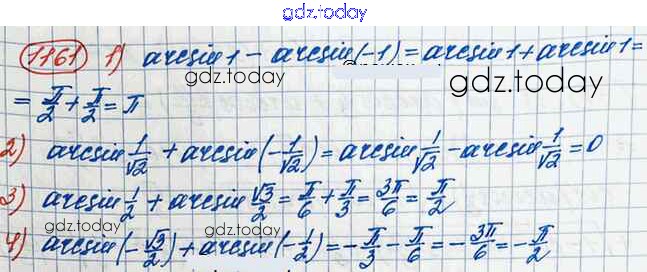 gdz.today
1161 1) arcsin 1 - arcsin(-1) = arcsin 1 + arcsin 1 =
gdz.today
gdz.today
= π/2 + π/2 = π
gdz.today
2) arcsin 1/√2 + arcsin(-1/√2) = arcsin 1/√2 - arcsin 1/√2 = 0
3) arcsin 1/2 + arcsin √3/2 = π/6 + π/3 = 3π/6 = π/2
gdz.today
gdz.today
4) arcsin(-√3/2) + arcsin(-1/2) = -π/3 - π/6 = -3π/6 = -π/2
gdz.today